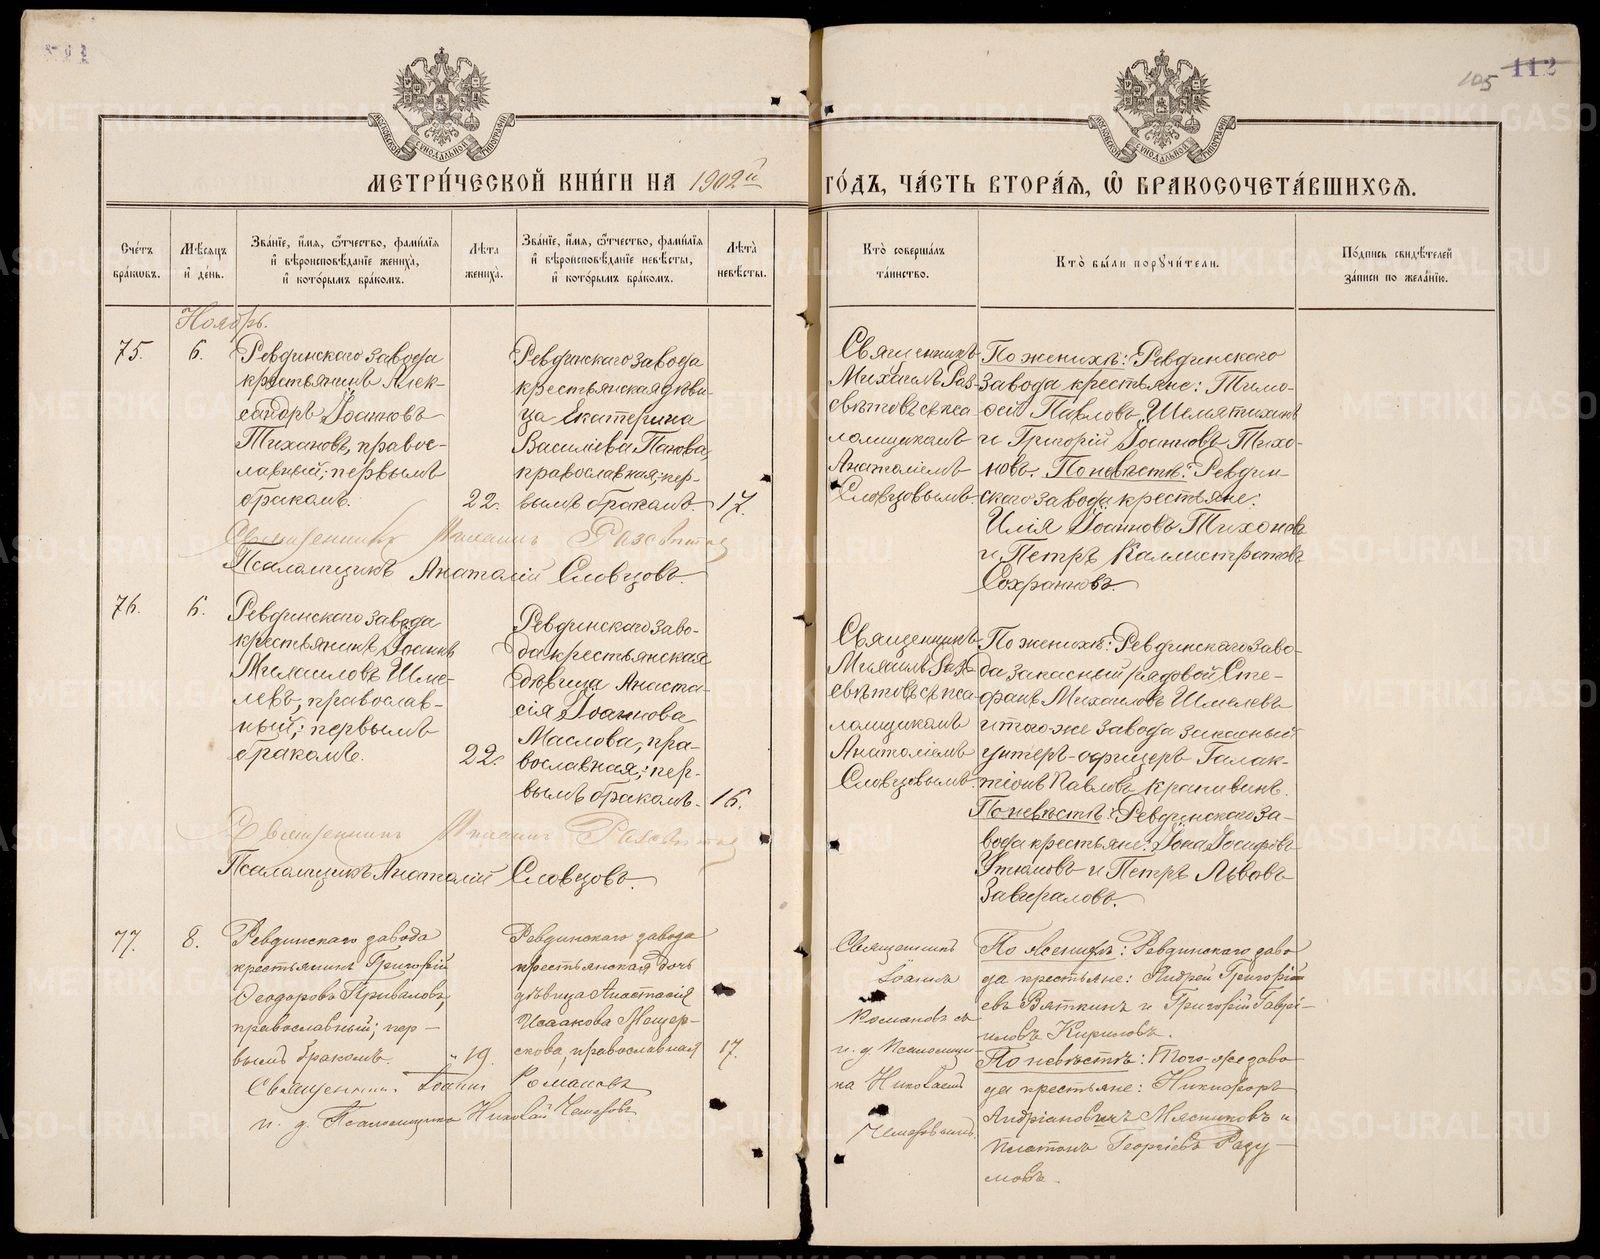 112
105
МЕТРИ́ЧЕСКОЙ КНИ́ГИ НА 1902й
ГО́ДЪ, ЧА́СТЬ ВТОРА́Ѧ, Ѿ БРАКОСОЧЕТА́ВШИХСѦ.
Сче́тъ бра́кѡвъ.
Мѣ́сѧцъ и҆ де́нь.
Зва́нїе, и҆́мѧ, ѻ҆́тчество, фами́лїѧ и҆ вѣроисповѣ́данїе жениха̀, и҆ кото́рымъ бра́комъ.
Лѣ́та жениха̀.
Зва́нїе, и҆́мѧ, ѻ҆́тчество, фами́лїѧ и҆ вѣроисповѣ́данїе невѣ́сты, и҆ кото́рымъ бра́комъ.
Лѣ́та невѣ́сты.
Кто̀ соверша́лъ та́инство.
Кто̀ бы́ли порꙋчи́тели.
По́дпись свидѣ́телей за́писи по жела́нїю.
Ноябрь.
75.
6.
Ревдинскаго завода
крестьянинъ Алек-
сандръ Іоанновъ
Тихановъ, правос-
лавный; первымъ
бракомъ.
22.
Ревдинскаго завода
крестьянская дѣви-
ца Екатерина
Василіева Панова,
православная; пер-
вымъ бракомъ.
17.
Священникъ
Михаилъ Раз-
свѣтовъ съ пса-
ломщикомъ
Анатоліемъ
Словцовымъ.
По женихѣ: Ревдинскаго
завода крестьяне: Тимо-
ѳей Павловъ Шемятихинъ
и Григорій Іоанновъ Тихо-
новъ. По невѣстѣ: Ревдин-
скаго завода крестьяне:
Илія Іоанновъ Тихоновъ
и Петръ Каллистратовъ
Сохранновъ.
Священникъ Михаилъ Разсвѣтовъ
Псаломщикъ Анатолій Словцовъ.
76.
6.
Ревдинскаго завода
крестьянинъ Іоаннъ
Михаиловъ Шме-
левъ, православ-
ный; первымъ
бракомъ.
22.
Ревдинскаго заво-
да крестьянская
дѣвица Анаста-
сія Іоаннова
Маслова, пра-
вославная; пер-
вымъ бракомъ.
16.
Священникъ
Михаилъ Раз-
свѣтовъ съ пса-
ломщикомъ
Анатоліемъ
Словцовымъ.
По женихѣ: Ревдинскаго заво-
да запасный рядовой Сте-
фанъ Михаиловъ Шмелевъ
и того же завода запасный
унтеръ-офицеръ Галак-
тіонъ Павловъ Крапивинъ.
По невѣстѣ: Ревдинскаго за-
вода крестьяне: Іона Іосифовъ
Утюмовъ и Петръ Львовъ
Завьраловъ.
Священникъ Михаилъ Разсвѣтовъ
Псаломщикъ Анатолій Словцовъ.
77.
8.
Ревдинскаго завода
крестьянинъ Григорій
Ѳеодоровъ Приваловъ,
православный; пер-
вымъ бракомъ.
19.
Ревдинскаго завода
крестьянская дочь
дѣвица Анастасія
Исаакова Мещер-
скова, православная
17.
Священникъ
Іоаннъ
Романовъ съ
и. д. псаломщи-
ка Николаемъ
По женихѣ: Ревдинскаго заво
да крестьяне: Андрей Григорі
евъ Вяткинъ и Григорій Гаврі-
иловъ Кириловъ.
По невѣстѣ: Того-же заво-
да крестьяне: Никифоръ
Андріановичъ Мясниковъ и
Платонъ Георгіевъ Разу-
мовъ.
Священникъ Іоаннъ Романовъ
и. д. Псаломщика Николай